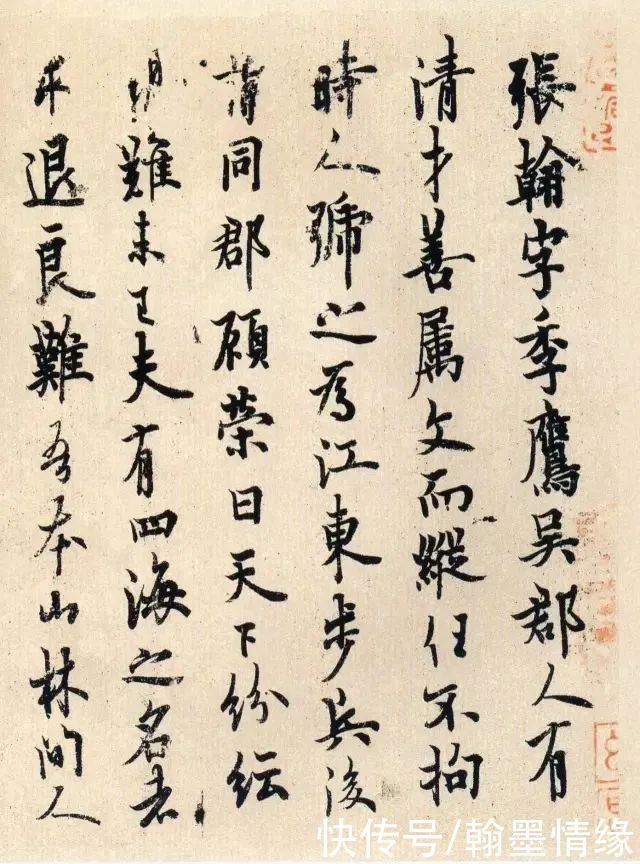 張翰字季鷹吳郡人有
清才善屬文而縱任不拘
時人號之為江東步兵後
同郡顧榮曰天下紛紜
難未已夫有四海之名者
求退良難吾本山林間人
快传号/翰墨情缘